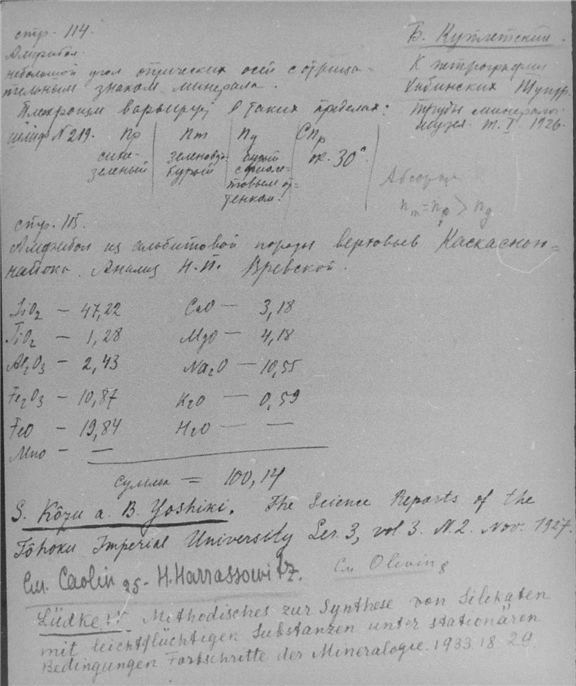 стр. 114.
Амфибол.
небольшой угол оптических осей с отрица-
тельным знаком минерала.
Плеохроизм варьирует в таких пределах:
шлиф N 219. np | nm | ng | Cnp
сине-зеленый | зеленовато-бурый | бурый с фиоле-товым от-тенком | ок. 30°
Б. Куплетский.
К петрографии
Умбинских Тундр.
Труды минерало.
музея. т. I 1926.
Абсорп
nm = np > ng
стр. 115.
Амфибол из альбитовой породы верховьев Каскаснюн-
найока. Анализ Н.И. Вревской.
SiO2 — 47,22 CaO — 3,18
TiO2 — 1,28 MgO — 4,18
Al2O3 — 2,43 Na2O — 10,55
Fe2O3 — 10,87 K2O — 0,59
FeO — 19,84 H2O — —
MnO — —
сумма = 100,14
S. Kôzu a. B. Yoshiki. The Science Reports of the
Tôhoku Imperial University Ser. 3, vol 3. N. 2. Nov. 1927.
См. Caolin 25 - H. Harrassowitz.
См Olivine
Lüdke: Methodisches zur Synthese von Silikaten
mit leichtflüchtigen Substanzen unter stationären
Bedingungen Fortschritte der Mineralogie. 1933. 18